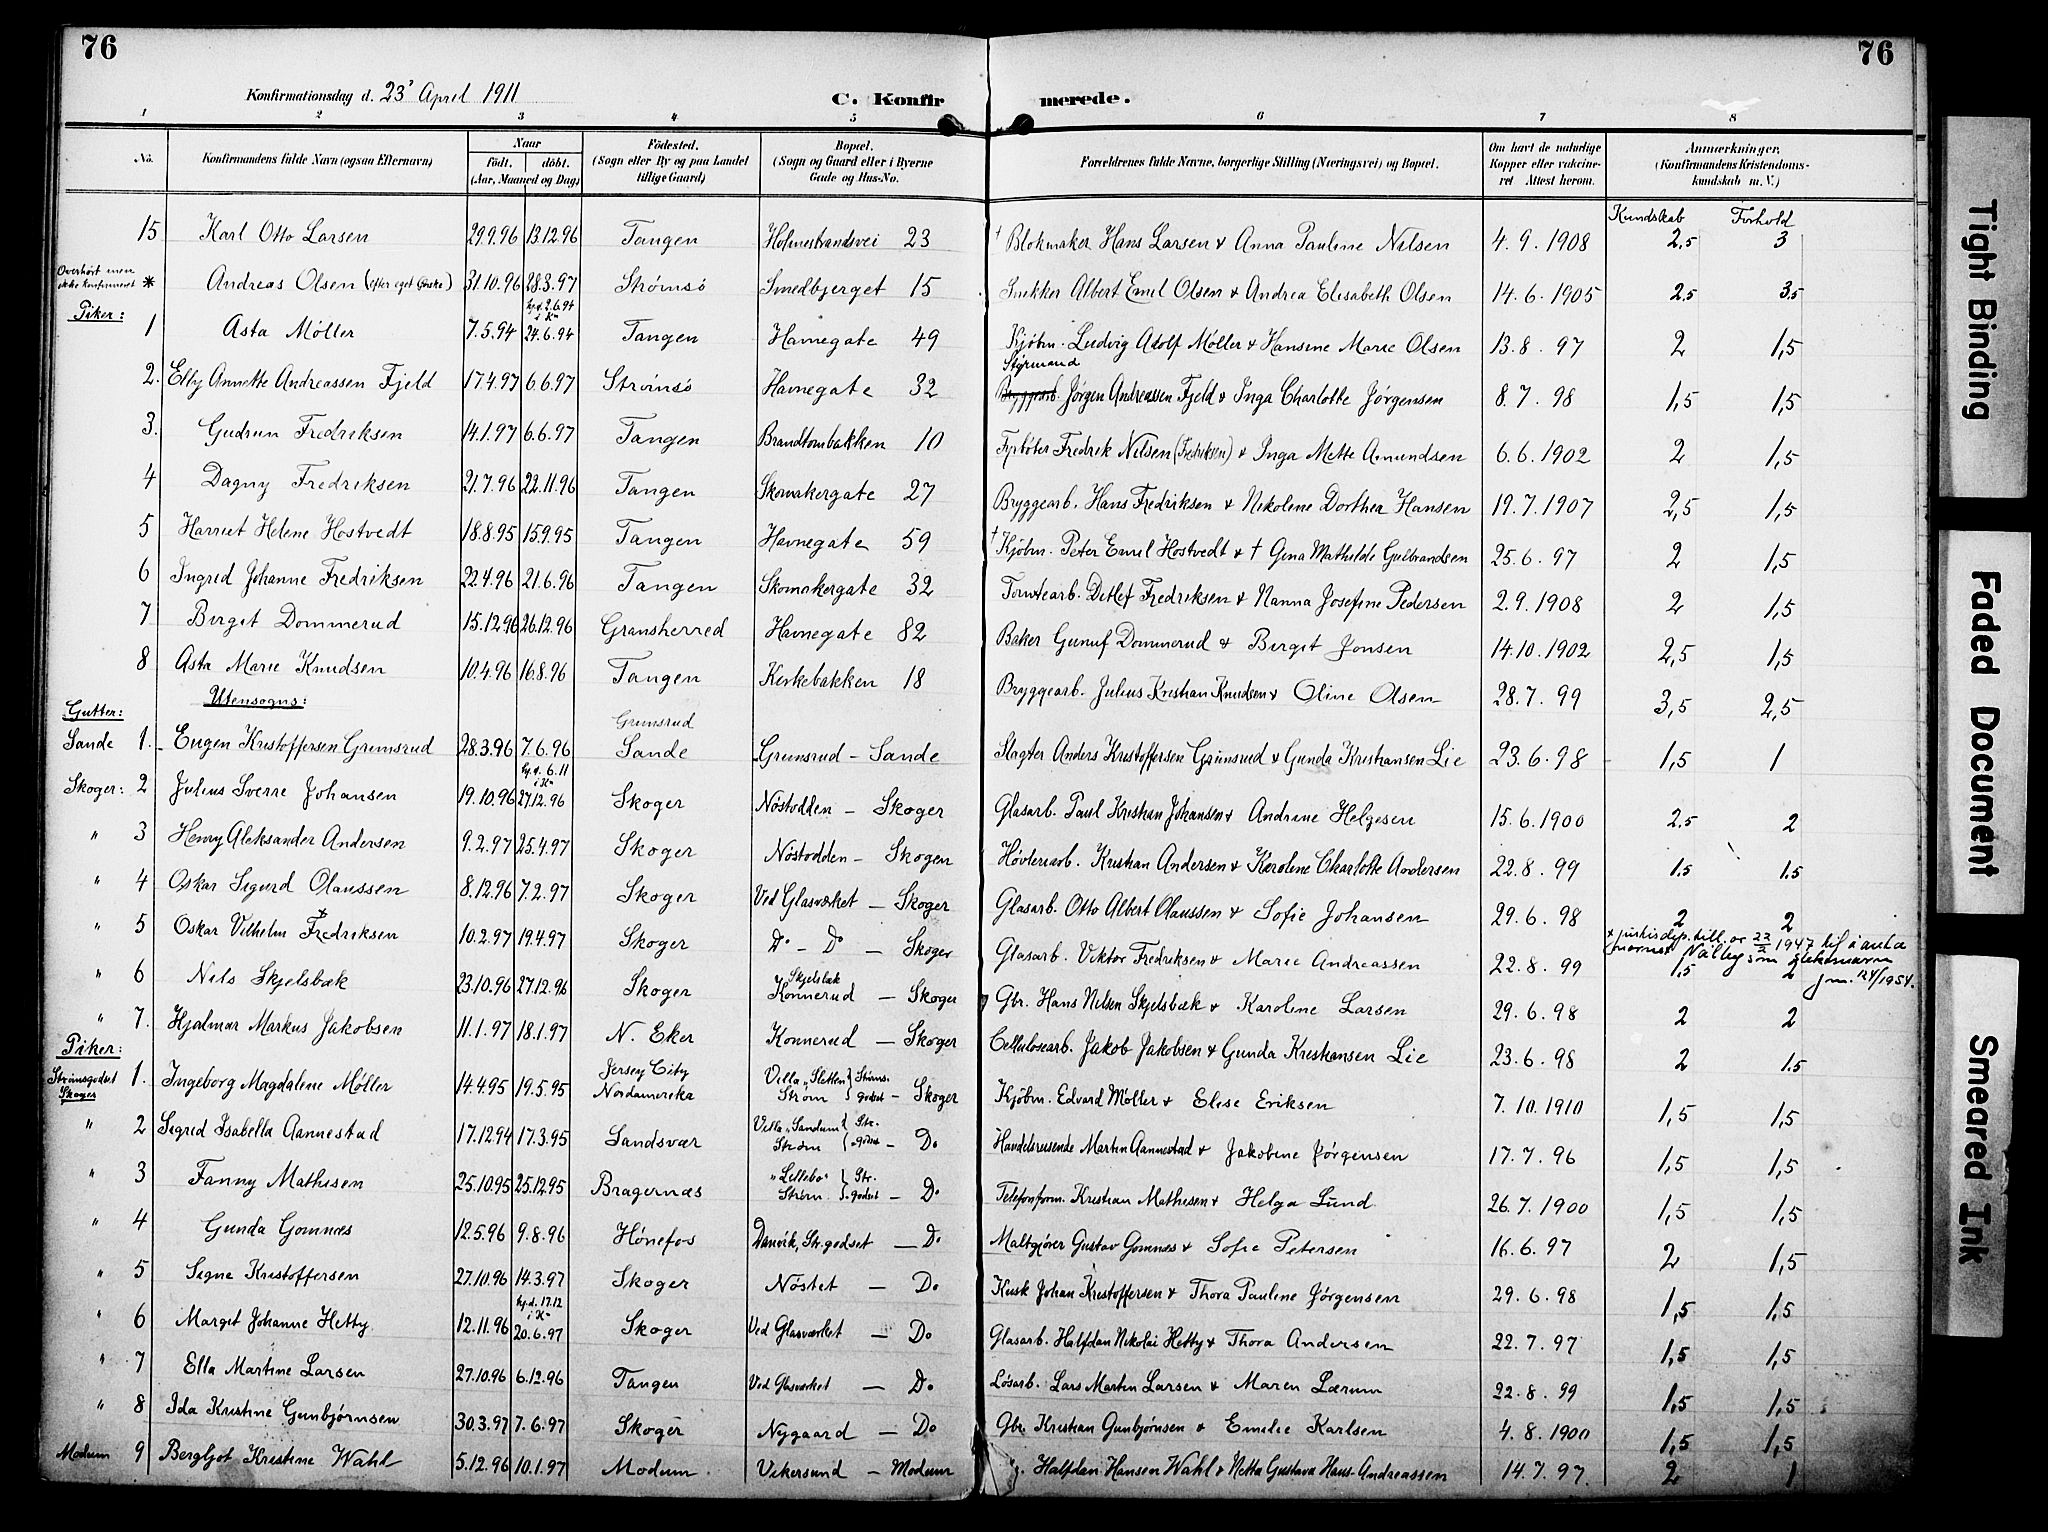 76
76
Konfirmationsdag d. 23' April 1911
C. Konfirmerede.
1 2 3 4 5 6 7 8
No. Konfirmandens fulde Navn (ogsaa Efternavn) Naar födt. döbt. (Aar, Maaned og Dag) Födested. (Sogn eller By og paa Landet tillige Gaard) Bopæl. (Sogn og Gaard eller i Byerne Gade og Hus-No. Forældrenes fulde Navne, borgerlige Stilling (Næringsvei) og Bopæl. Om havt de naturlige Kopper eller vakcineret Attest herom. Anmærkninger, (Konfirmandens Kristendomskundskab m. V.)
Kundskab Forhold
15 Karl Otto Larsen 29.9.96 13.12.96 Tangen Holmestrandsvei 23 † Blokmaker Hans Larsen & Anna Pauline Nilsen 4.9.1908 2,5 3
Overhørt men ikke konfirmeret * Andreas Olsen (efter eget Ønske) 31.10.96 28.3.97 Strømsø Smedbjerget 15 Snekker Albert Emil Olsen & Andrea Elisabeth Olsen 14.6.1905 2,5 3,5
Piker:
1 Asta Møller 7.5.94 hjd. 2.6.94 i K. 24.6.94 Tangen Havnegate 49 Kjøbm. Ludvig Adolf Møller & Hansine Marie Olsen 13.8.97 2 1,5
2. Elly Annette Andreassen Fjeld 17.4.97 6.6.97 Strømsø Havnegate 32 Styrmand Bryggearb. Jørgen Andreassen Fjeld & Inga Charlotte Jørgensen 8.7.98 1,5 1,5
3. Gudrun Fredriksen 14.1.97 6.6.97 Tangen Brandtombakken 10 Fyrbøter Fredrik Nilsen (Fredriksen) & Inga Mette Amundsen 6.6.1902 2 1,5
4 Dagny Fredriksen 21.7.96 22.11.96 Tangen Skomakergate 27 Bryggearb. Hans Fredriksen & Nikolene Dorthea Hansen 19.7.1907 2,5 1,5
5 Harriet Helene Hostvedt 18.8.95 15.9.95 Tangen Havnegate 59 † Kjøbm. Peter Emil Hostvedt & † Gina Mathilde Gulbrandsen 25.6.97 2 1,5
6 Ingrid Johanne Fredriksen 22.4.96 21.6.96 Tangen Skomakergate 32 Tomtearb. Detlef Fredriksen & Nanna Josefine Pedersen 2.9.1908 2 1,5
7 Birgit Dommerud 15.12.96 26.12.96 Gransherred Havnegate 82 Baker Gunuf Dommerud & Birgit Jonsen 14.10.1902 2,5 1,5
8 Asta Marie Knudsen 10.4.96 16.8.96 Tangen Kirkebakken 18 Bryggearb. Julius Kristian Knudsen & Oline Olsen 28.7.99 3,5 2,5
Utensogns:
Gutter:
Sande 1. Eugen Kristoffersen Grimsrud 28.3.96 7.6.96 Grimsrud Sande Grimsrud - Sande Slagter Anders Kristoffersen Grimsrud & Gunda Kristiansen Lie 23.6.98 1,5 1
Skoger: 2 Julius Sverre Johansen 19.10.96 hj.d. 6.11 i K. 27.12.96 Skoger Nøstodden - Skoger Glasarb. Paul Kristian Johansen & Andrine Helgesen 15.6.1900 2.5 2
" 3 Henry Aleksander Andersen 9.2.97 25.4.97 Skoger Nøstodden - Skoger Høvleriarb. Kristian Andersen & Karoline Charlotte Andersen 22.8.99 1.5 1.5
" 4 Oskar Sigurd Olaussen 8.12.96 7.2.97 Skoger Ved Glasværket - Skoger Glasarb. Otto Albert Olaussen & Sofie Johansen 29.6.98 2 2
" 5 Oskar Vilhelm Fredriksen 10.2.97 19.4.97 Skoger Do - Do - Skoger Glasarb. Viktor Fredriksen & Marie Andreassen 22.8.99 1.5 2
* justisdep. till. av 22/2 1947 til å anta navnet Nålby som slektsnavn
Jnr. 124/1954.
" 6 Nils Skjelsbæk 23.10.96 27.12.96 Skoger Skjelsbæk Konnerud - Skoger Gbr. Hans Nilsen Skjelsbæk & Karoline Larsen 29.6.98 2 2
" 7. Hjalmar Markus Jakobsen 11.1.97 18.1.97 N. Eker Konnerud - Skoger Cellulosearb. Jakob Jakobsen & Gunda Kristiansen Lie 23.6.98 2 1.5
Piker:
Strømsgodset Skoger 1. Ingeborg Magdalene Möller 14.4.95 19.5.95 Jersey City Nordamerika Villa "Sletten" Strøm Strømsgodset - Skoger Kjøbm. Edvard Möller & Elise Eriksen 7.10.1910 1,5 1,5
" 2 Sigrid Isabella Aannestad 17.12.94 17.3.95 Sandsvær Villa "Sandum" Strøm Str. godset - Do Handelsreisende Martin Aannestad & Jakobine Jørgensen 17.7.96 1,5 1,5
" 3 Fanny Mathisen 25.10.95 25.12.95 Bragernæs "Lillebo" Strøm Str. godset - Do Telefonform. Kristian Mathisen & Helga Lund 26.7.1900 1,5 1,5
" 4 Gunda Gomnæs 12.5.96 9.8.96 Hønefos Danvik, Str.godset - Do Maltgjører Gustav Gomnæs & Sofie Petersen 16.6.97 2 1,5
" 5 Signe Kristoffersen 27.10.96 14.3.97 Skoger Nøstet - Do Kusk Johan Kristoffersen & Thora Pauline Jørgensen 29.6.98 1,5 1,5
" 6 Margit Johanne Hetty 12.11.96 hj.d. 17.12 i K. 20.6.97 Skoger Ved Glasværket - Do Glasarb. Halfdan Nikolai Hetty & Thora Andersen 22.7.97 1,5 1,5
" 7 Ella Martine Larsen 27.10.96 6.12.96 Tangen Ved Glasværket - Do Løsarb. Lars Martin Larsen & Maren Lærum 22.8.99 1,5 1,5
" 8 Ida Kristine Gunbjørnsen 30.3.97 7.6.97 Skoger Nygaard - Do Gbr. Kristian Gunbjørnsen & Emilie Karlsen 4.8.1900 1,5 1,5
Modum 9 Bergljot Kristine Wahl 5.12.96 10.1.97 Modum Vikersund - Modum Halfdan Hansen Wahl & Netta Gustava Hans-Andreassen 14.7.97 2 1
Tight Binding
Faded Document
Smeared Ink